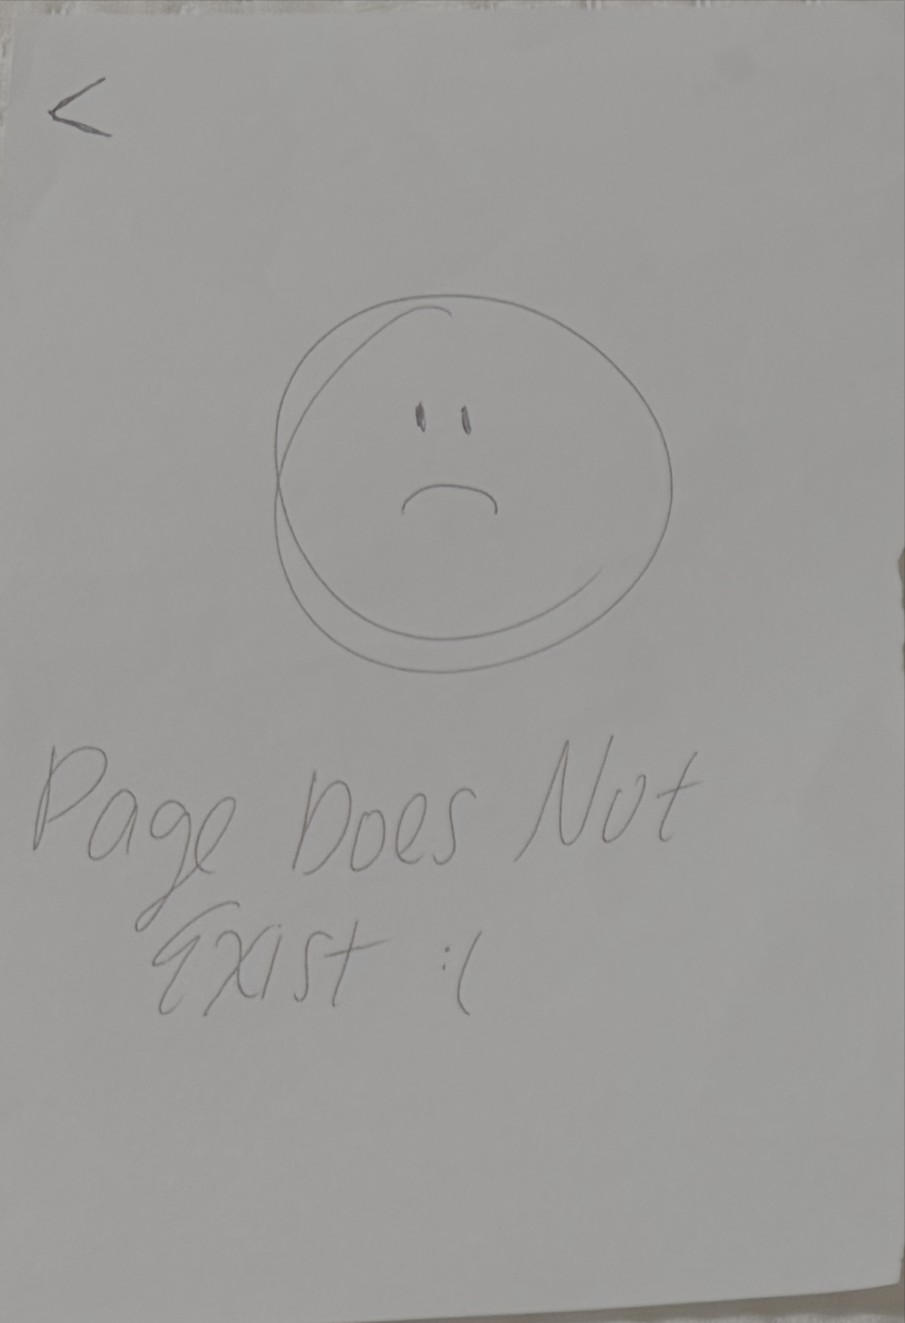 <
Page Does Not
Exist :(